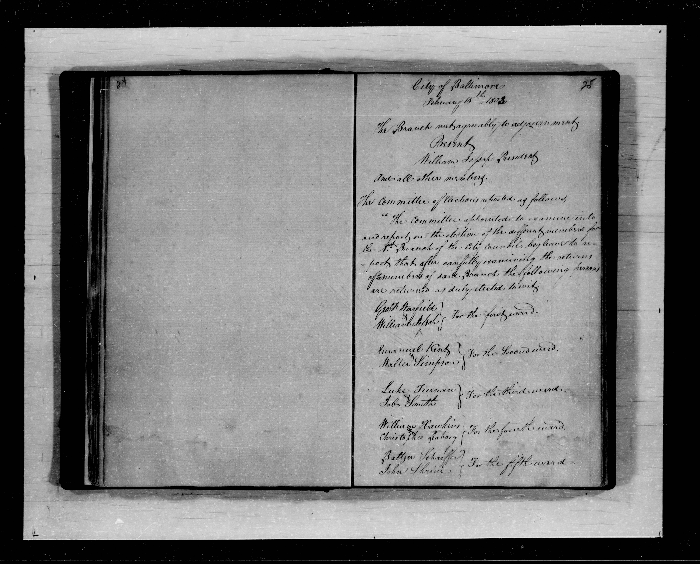 City of Baltimore
February 18th
The Branch met agreeably to adjournment
Present
William President
And all other members.
The Committee of Elections reported as follows,
" The Committee appointed to examine into
and report on the election of the different members for
the 1st Branch of the City Council, beg leave to re
- port that after carefully examining the returns
of members of said Branch the following persons
are returned as duly elected to wit
Warfield
William } For the first ward.
Emanuel Kent
Walter Simpson } For the Second ward.
Luke Tiernan
John Smith } For the third ward.
William Hawkins
Christopher } For the fourth ward
Baltzer Schaeffer
John Shrim } For the fifth ward